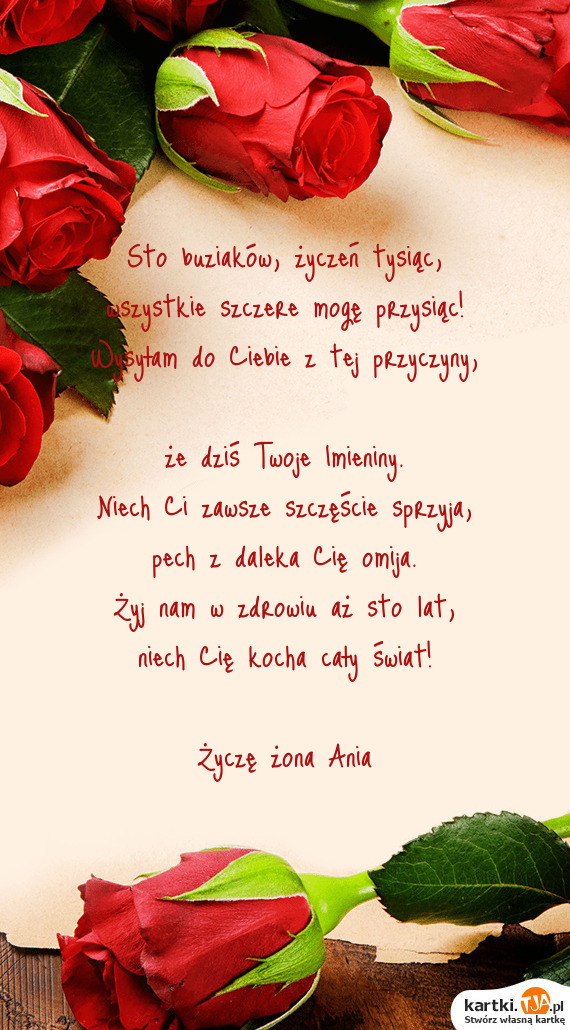 Sto buziaków, życzeń tysiąc,
wszystkie szczere mogę przysiąc!
Wysyłam do Ciebie z tej przyczyny,
że dziś Twoje Imieniny.
Niech Ci zawsze szczęście sprzyja,
pech z daleka Cię omija.
Żyj nam w zdrowiu aż sto lat,
niech Cię kocha cały świat!
Życzę żona Ania
kartki.TJA.pl
Stwórz własną kartkę